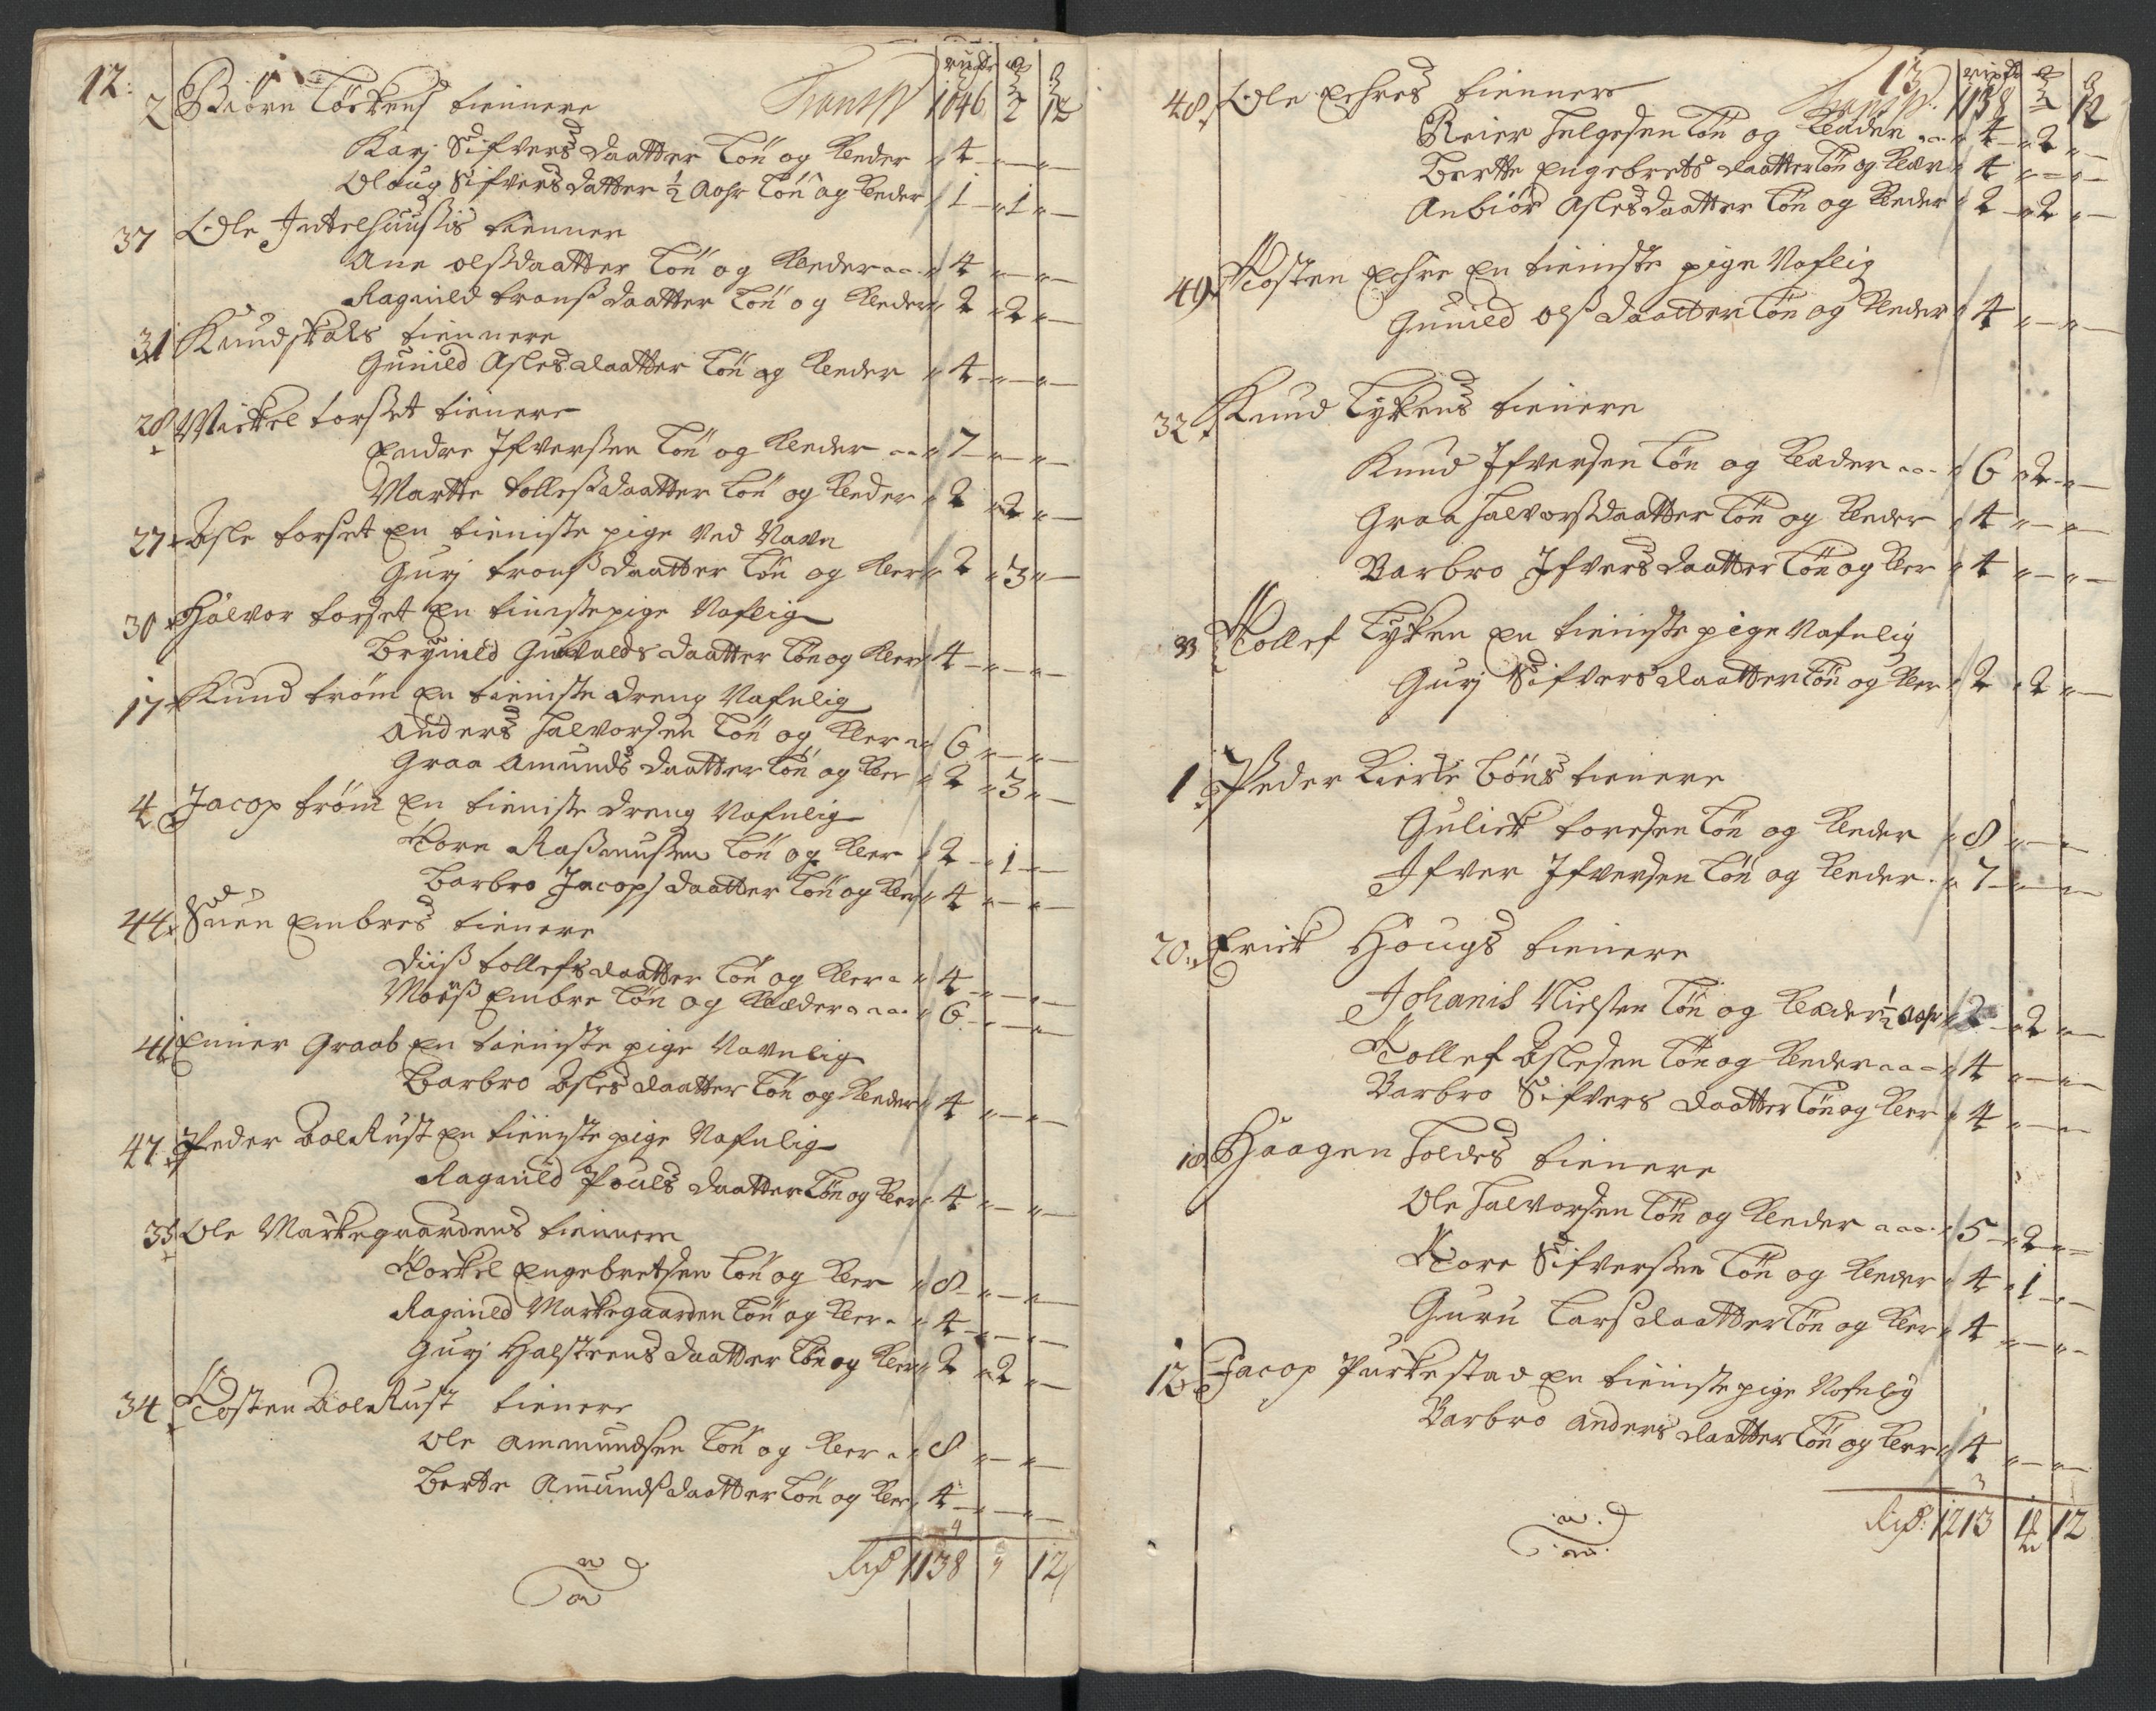 12:
rixdr
2 Biörn Törkens tiennere Transp 1046 2 12
Karj Sifvers daatter Lön og Kleder 4 — —
Oloug Sifvers datter ½ Aahr Lön og Kleder 1 — 1 —
37 Ole tienner
Ane olsdaatter Lön og Kleder 4 — —
Ragnild tronsdaatter Lön og Kleder 2 2 —
31 Knud skals tiennere
Gunild Aslesdaatter Lön og Kleder 4 — —
28 Mickel torset tienere
Endre Ifversen Lön og Kleder 7 — —
Martte tollefsdaatter Lön og Kleder 2 2 —
27 Asle torset en tieniste pige ved Navn
Gurj tronsdaatter Lön og Kler 2 3 —
30 Halvor torset en tienstepige Naflig
Brynild Gunvalds daatter Lön og Kler 4 — —
17 Knud tröm en tieniste dreng Nafnlig
Anders Halvorsen Lön og Kler 6 — —
Graa Amunds daatter Lön og Kler 2 3 —
4 Jacop tröm en tieniste dreng Nafnlig
Tore Rasmussen Lön og Kler 2 1 —
Barbro Jacops daatter Lön og Kler 4 — —
44 Suen Embres tienere
tollefsdaatter Lön og Kler 4 — —
Moens Embre Lön og Klæder 6 — —
41 Einer Graab en tieniste pige Navnlig
Barbro Asles daatter Lön og Kleder 4 — —
47 Peder BolRust en tieniste pige Nafnlig
Ragnild Pouls daatter Lön og Kler 4 — —
35 Ole Markegaardens tiennere
Torkel Engebretsen Lön og Kler 8 — —
Ragnild Markegaarden Lön og Kler 4 — —
Gurj Halstens daatter Lön og Kler 2 2 —
34 Tosten BolRust tienere
Ole Ammundsen Lön og Kler 8 — —
Berte Amunds daatter Lön og Kler 4 — —
Rdr 1138 12
13
rixdr
48 Ole Echres tienner Transp. 1138 12
Reier Helgesen Lön og Klæder 4 2 —
Bertte Engebrets daatter Lön og Klær 4 — —
Anbiör Aslesdaatter Lön og Kleder 2 2 —
49 Tosten Echre en tieniste pige Naflig
Gunild Ols daatter Lön og Kleder 4 — —
32 Knud Lykens tienere
Knud Ifversen Lön og Klæder 6 2 —
Graa Halvorsdaatter Lön og Kleder 4 — —
Barbro Ifvers daatter Lön og Kler 4 — —
33 Tollef Lyken en tieniste pige Nafnlig
Gurj Sifvers daatter Lön og Kler 2 2 —
1 Peder Kierke Böns tienere
Gulick toresen Lön og Kleder 8 — —
Ifver Ifversen Lön og Kleder 7 — —
20 Erick Hougs tienere
Johanis Nielsen Lön og Klæder ½ Aahr 2 2 —
Tollef Aslesen Lön og Kleder 4 — —
Barbro Sifvers daatter Lön og Kler 4 — —
18 Haagen Foldes tienere
Ole Halvorsen Lön og Kleder 5 2 —
Tore Sifversen Lön og Kleder 4 1 —
Guru Larsdaatter Lön og Kler 4 — —
12 Jacop Purkestad en tieniste pige Nafnlig
Barbro Anders daatter Lön og Kler 4 — —
Rdr: 1213 12